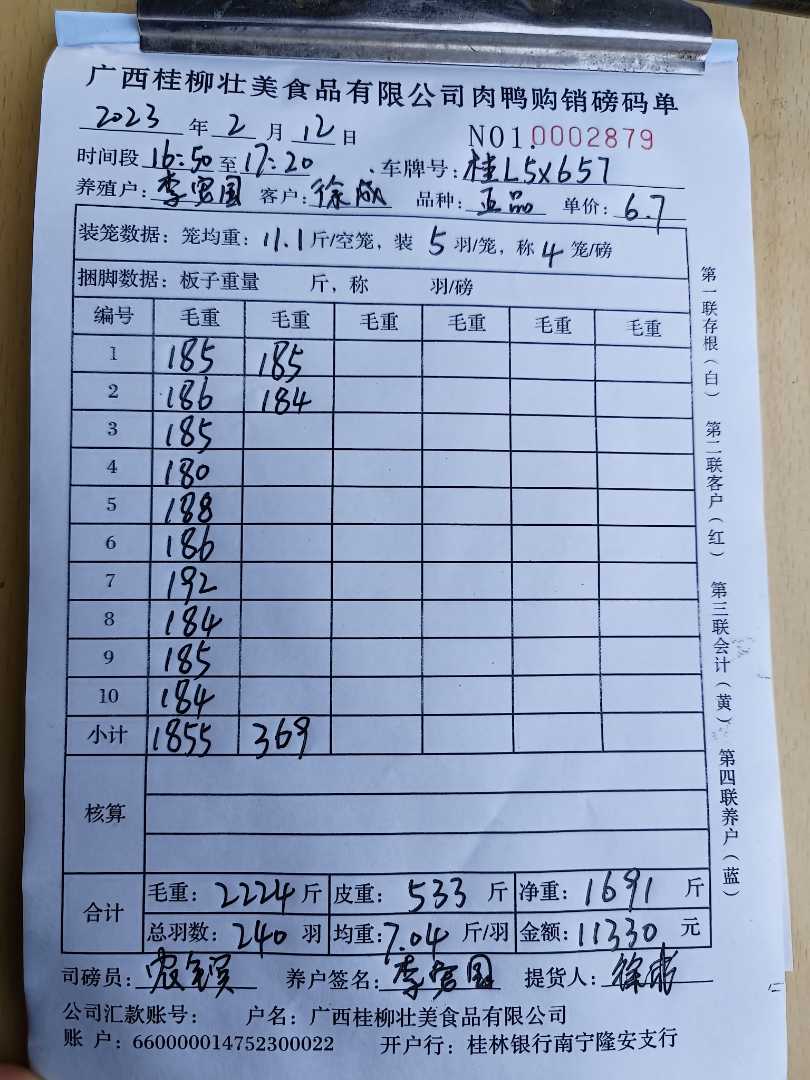 广西桂柳壮美食品有限公司肉鸭购销磅码单
2023 年 2 月 12 日 NO1.0002879
时间段 16:50 至 17:20 车牌号: 桂L5X657
养殖户: 李宽国 客户: 徐成 品种: 正品 单价: 6.7
装笼数据: 笼均重: 11.1 斤/空笼, 装 5 羽/笼, 称 4 笼/磅
捆脚数据: 板子重量 斤, 称 羽/磅
编号 毛重 毛重 毛重 毛重 毛重 毛重
1 185 185
2 186 184
3 185
4 180
5 188
6 186
7 192
8 184
9 185
10 184
小计 1855 369
核算
合计 毛重: 2224 斤 皮重: 533 斤 净重: 1691 斤
总羽数: 240 羽 均重: 7.04 斤/羽 金额: 11330 元
司磅员: 养户签名: 李宽国 提货人: 徐成
公司汇款账号: 户名: 广西桂柳壮美食品有限公司
账 户: 660000014752300022 开户行: 桂林银行南宁隆安支行
第一联存根(白) 第二联客户(红) 第三联会计(黄) 第四联养户(蓝)